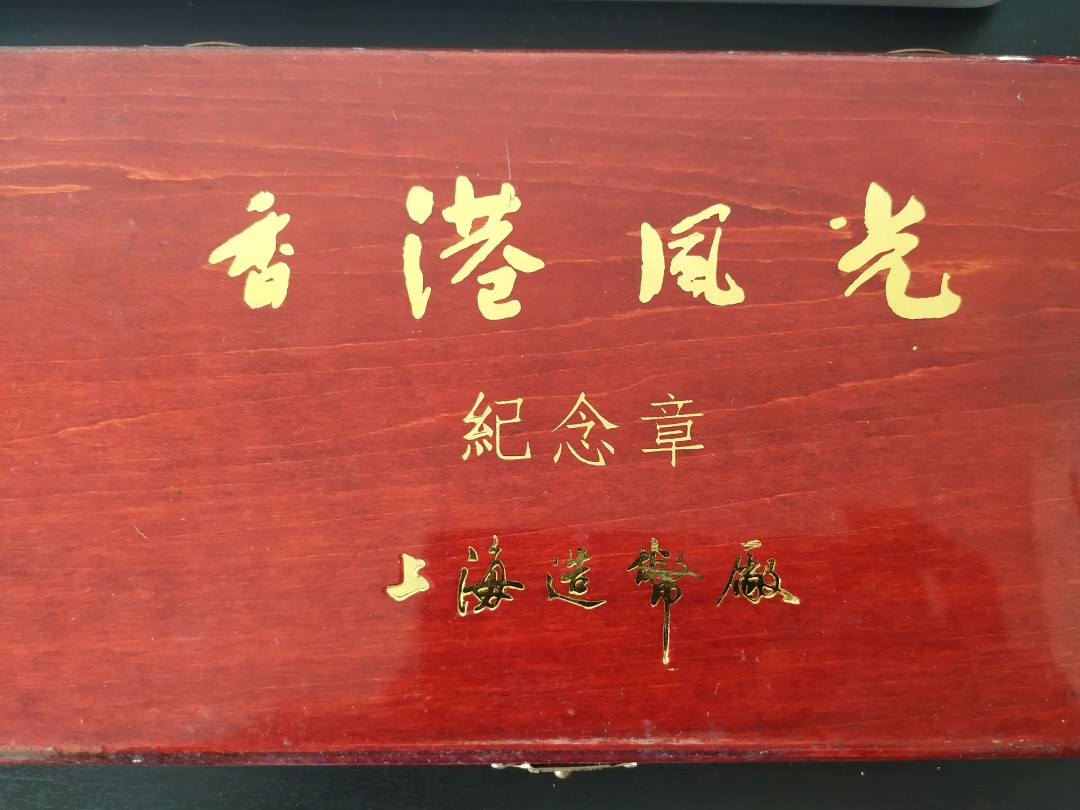 香港风光
紀念章
上海造幣廠